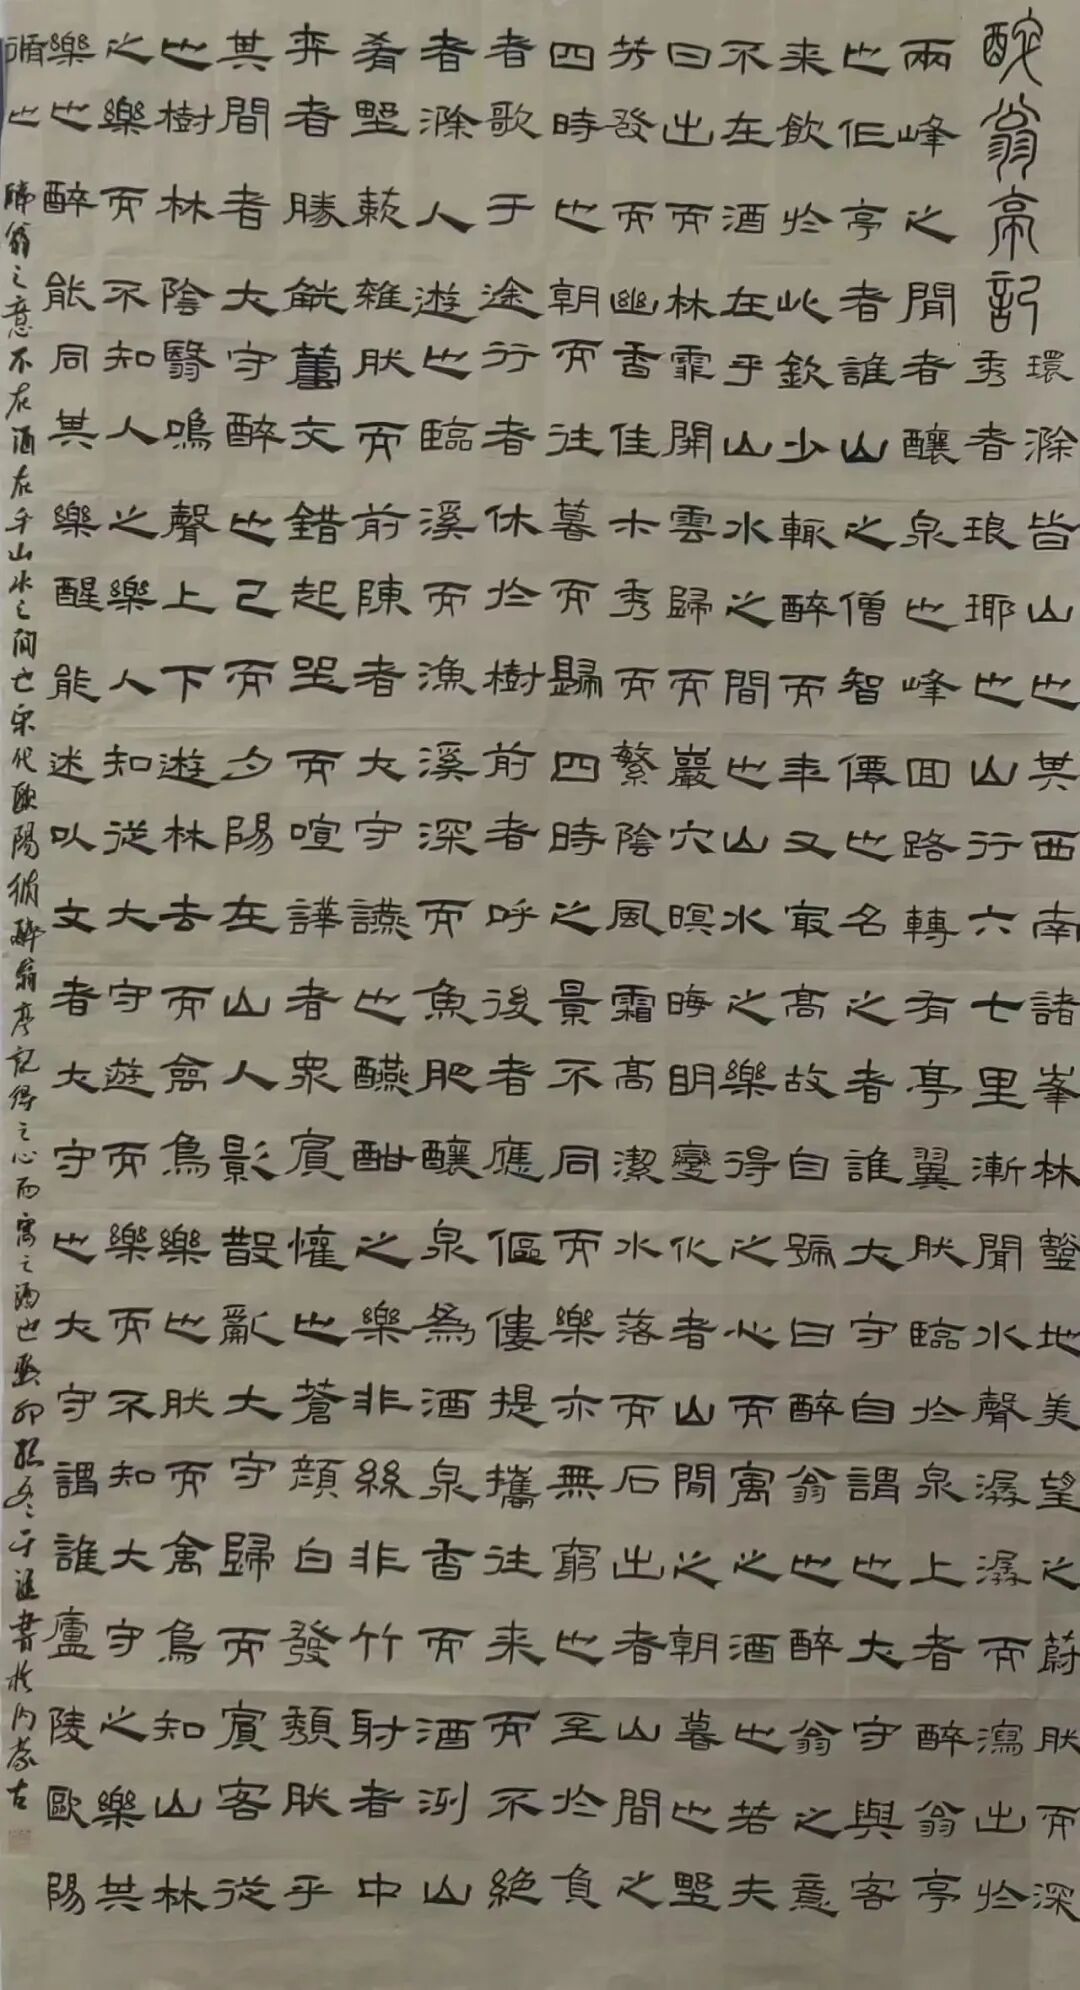 醉翁亭記
環滁皆山也其西南諸峯林壑地美望之蔚然而深
秀者琅琊也山行六七里漸聞水聲潺潺而瀉出於
兩峰之間者釀泉也峰回路轉有亭翼然臨於泉上者醉翁亭
也作亭者誰山之僧智僊也名之者誰大守自謂也大守與客
来飲於此飲少輒醉而年又最高故自號曰醉翁也醉翁之意
不在酒在乎山水之間也山水之樂得之心而寓之酒也若夫
日出而林霏開雲歸而巖穴暝晦明變化者山間之朝暮也野
芳發而幽香佳木秀而繁陰風霜高潔水落而石出者山間之
四時也朝而往暮而歸四時之景不同而樂亦無窮也至於負
者歌于途行者休於樹前者呼後者應傴僂提攜往来而不絕
者滁人遊也臨溪而漁溪深而魚肥釀泉為酒泉香而酒洌山
肴野蔌雜然而前陳者大守讌也醼酣之樂非絲非竹射者中
弈者勝觥籌交錯起坐而喧譁者眾賓懽也蒼顏白發頹然乎
其間者大守醉也已而夕陽在山人影散亂大守歸而賓客從
也樹林陰翳鳴聲上下遊林去而禽鳥樂也然而禽鳥知山林
之樂而不知人之樂人知從大守遊而樂而不知大守之樂其
樂也醉能同其樂醒能述以文者大守也大守謂誰廬陵歐陽
脩也
醉翁之意不在酒在乎山水之間也宋代歐陽脩醉翁亭記得之心而寓之酒也癸卯初冬于書於内蒙古